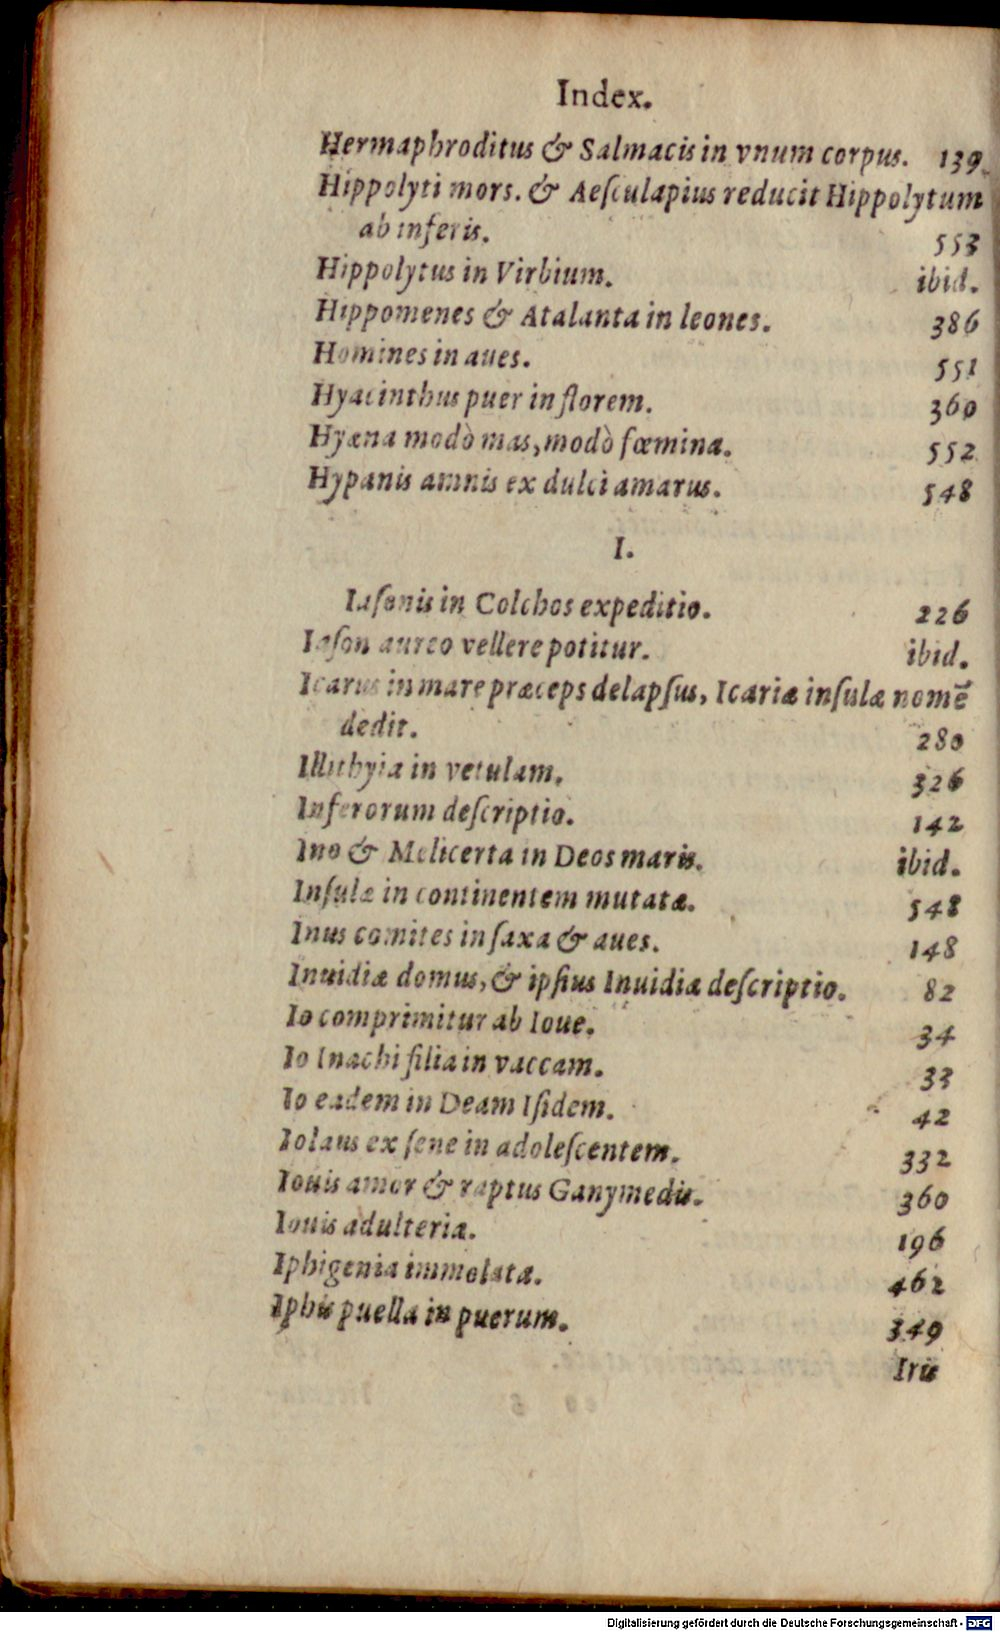 Index.
Hermaphroditus & Salmacis in vnum corpus. 139.
Hippolyti mors. & Aeſculapius reducit Hippolytum
ab inferis. 553
Hippolytus in Virbium. ibid.
Hippomenes & Atalanta in leones. 386
Homines in aues. 551
Hyacinthus puer in florem. 360
Hyæna modò mas, modò fœmina. 552
Hypanis amnis ex dulci amarus. 548
I.
Iaſonis in Colchos expeditio. 226
Iaſon aureo vellere potitur. ibid.
Icarus in mare præceps delapſus, Icariæ inſulæ nomē
dedit. 280
Illithyia in vetulam. 326
Inferorum deſcriptio. 142
Ino & Melicerta in Deos maris. ibid.
Inſulæ in continentem mutatæ. 548
Inus comites in ſaxa & aues. 148
Inuidiæ domus, & ipſius Inuidiæ deſcriptio. 82
Io comprimitur ab Ioue. 34
Io Inachi filia in vaccam. 33
Io eadem in Deam Iſidem. 42
Iolaus ex ſene in adoleſcentem. 332
Iouis amor & raptus Ganymedis. 360
Iouis adulteria. 196
Iphigenia immolata. 462
Iphis puella in puerum. 349
Iris
Digitalisierung gefördert durch die Deutsche Forschungsgemeinschaft - DFG